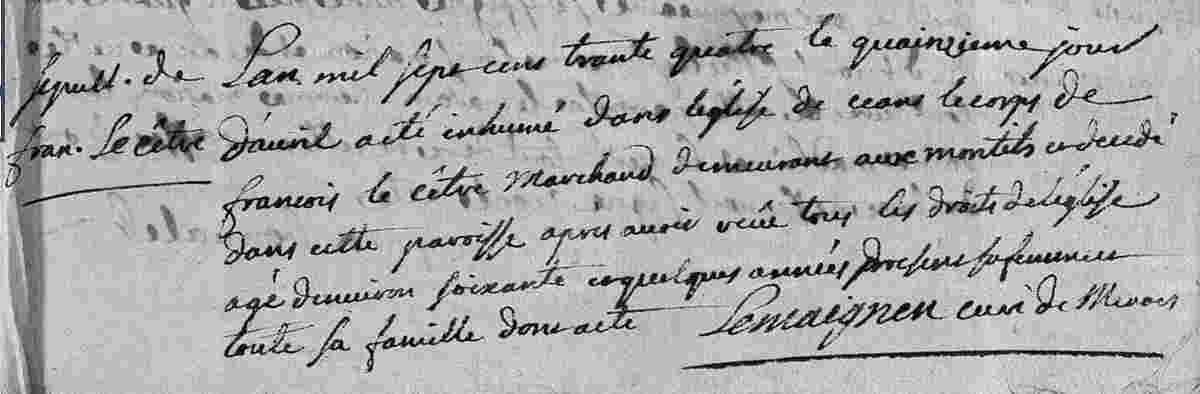 sepult. de
fran. Le cêtre
Lan mil sept cens trante quatre le quainzieme jour
d'avril a eté inhumé dans leglise de ceans le corps de
francois le cêtre Marchand demeurant aux montils et decedé
dans cette paroisse apres avoir recû tous les droits de l'église
agé denviron soixante et quelques années presens sa femme et
toute sa famille dont acte Lemaignen curé de